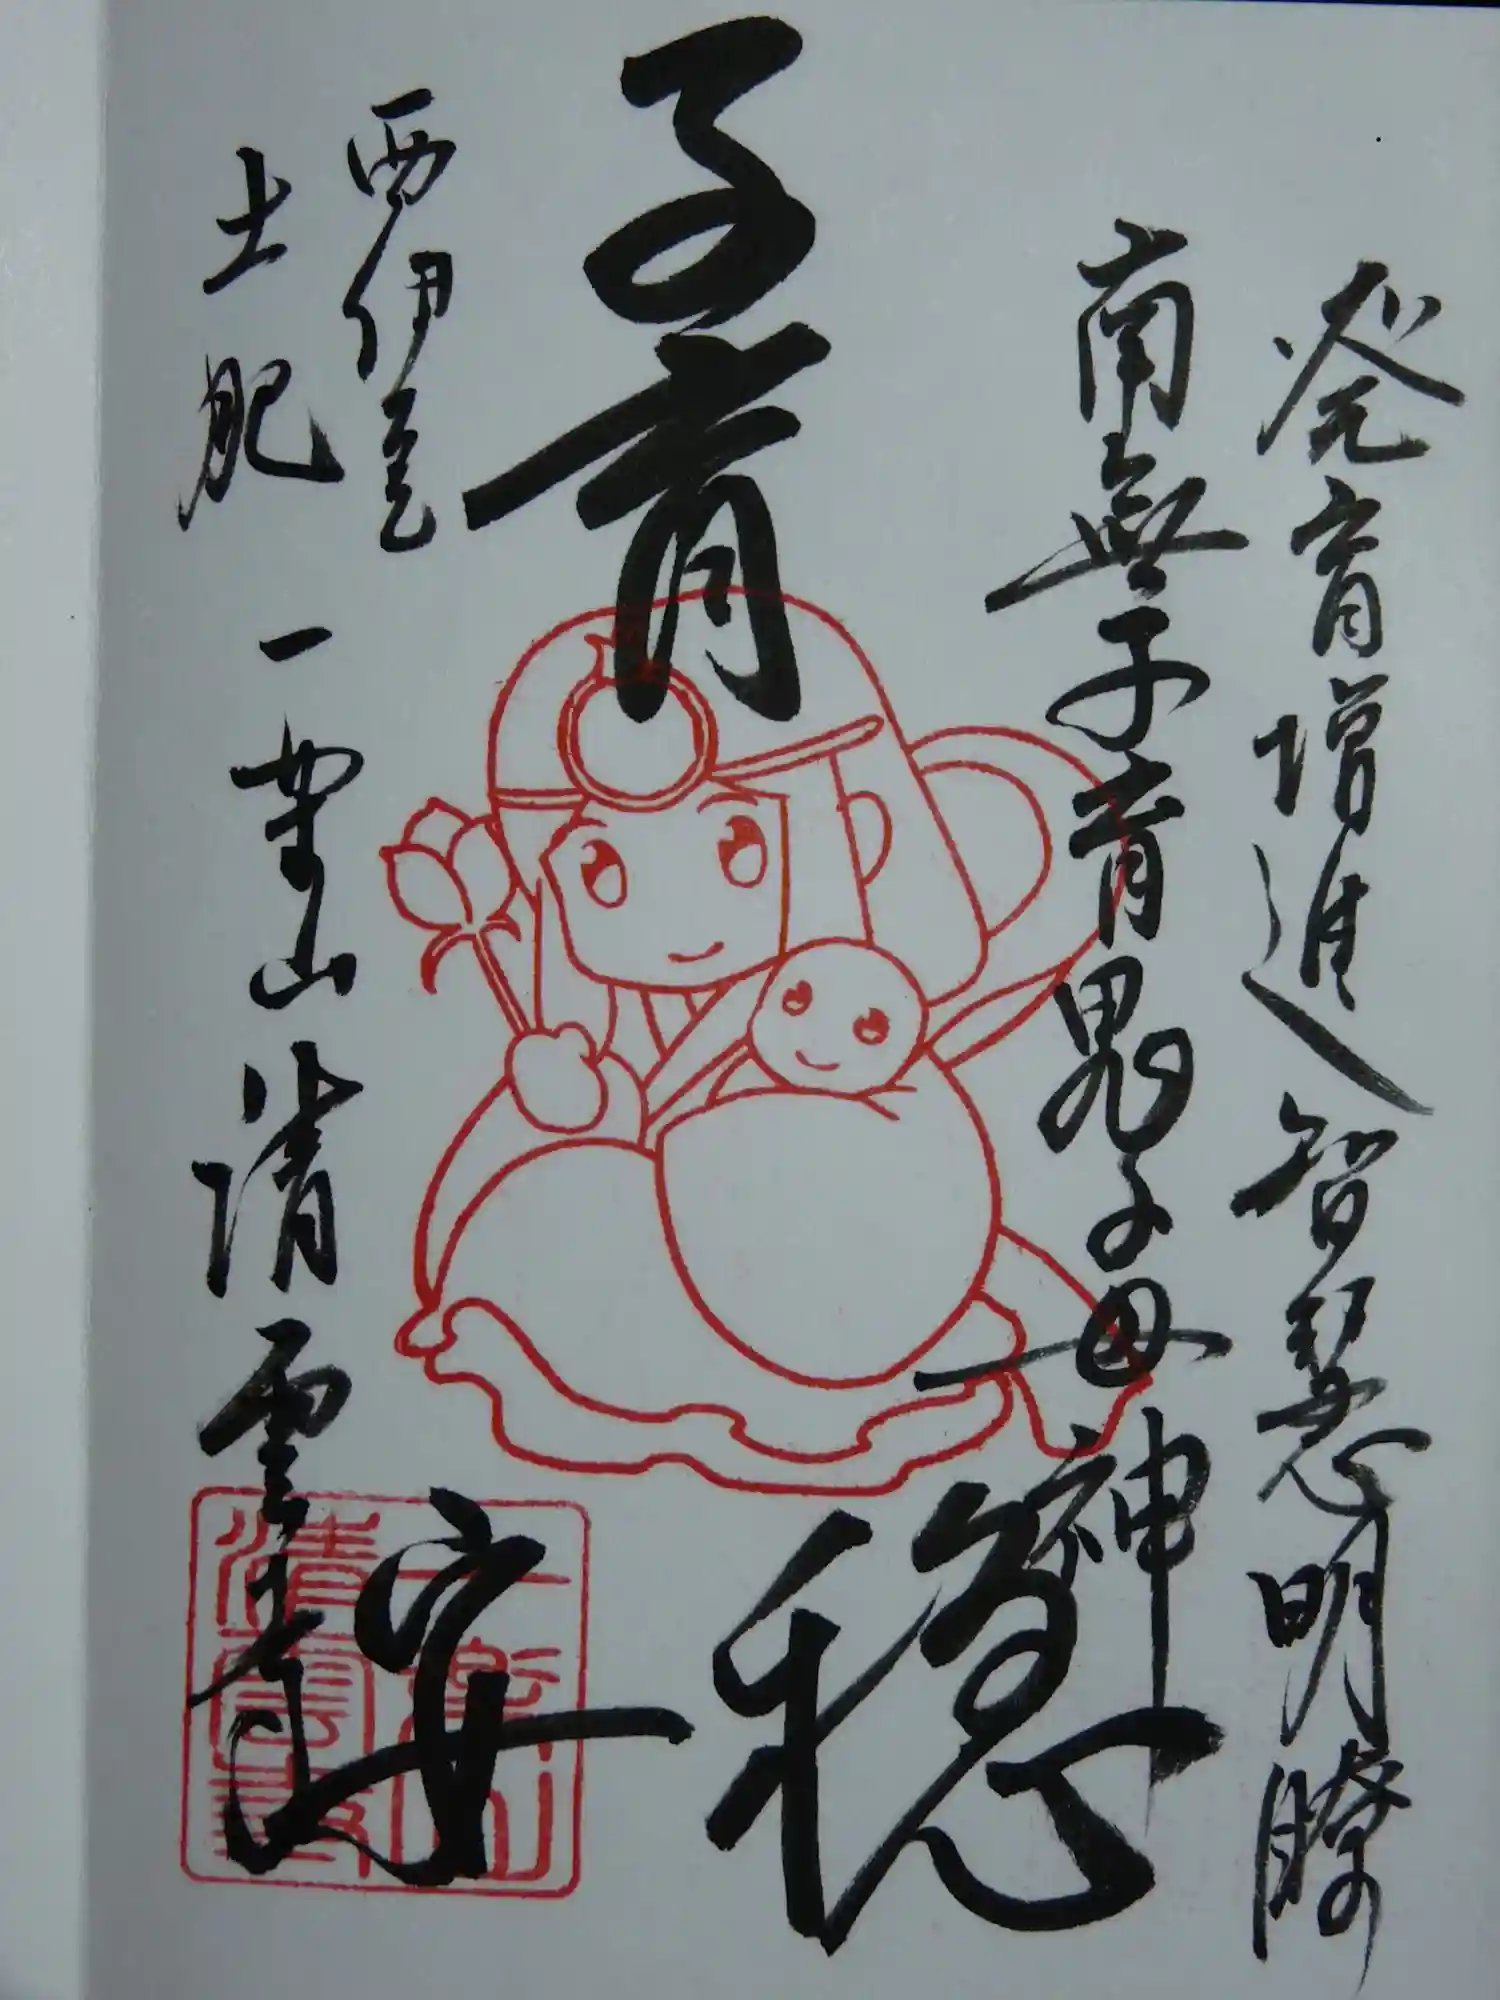 発育増進智慧明瞭
南無子育鬼子母神
子育
安穏
西伊豆
土肥
一 山清雲寺
清雲寺